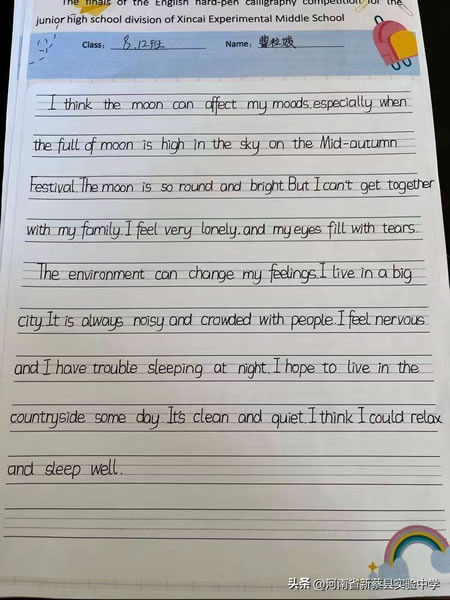 The finals of the English hard-pen calligraphy competition for the
junior high school division of Xincai Experimental Middle School
Class: 8.12班 Name: 曹
I think the moon can affect my moods.especially when
the full of moon is high in the sky on the Mid-autumn
Festival.The moon is so round and bright.But I can't get together
with my family.I feel very lonely.and my eyes fill with tears.
The environment can change my feelings.I live in a big
city.It is always noisy and crowded with people.I feel nervous
and I have trouble sleeping at night.I hope to live in the
countryside some day.It's clean and quiet.I think I could relax
and sleep well.
头条 @河南省新蔡县实验中学